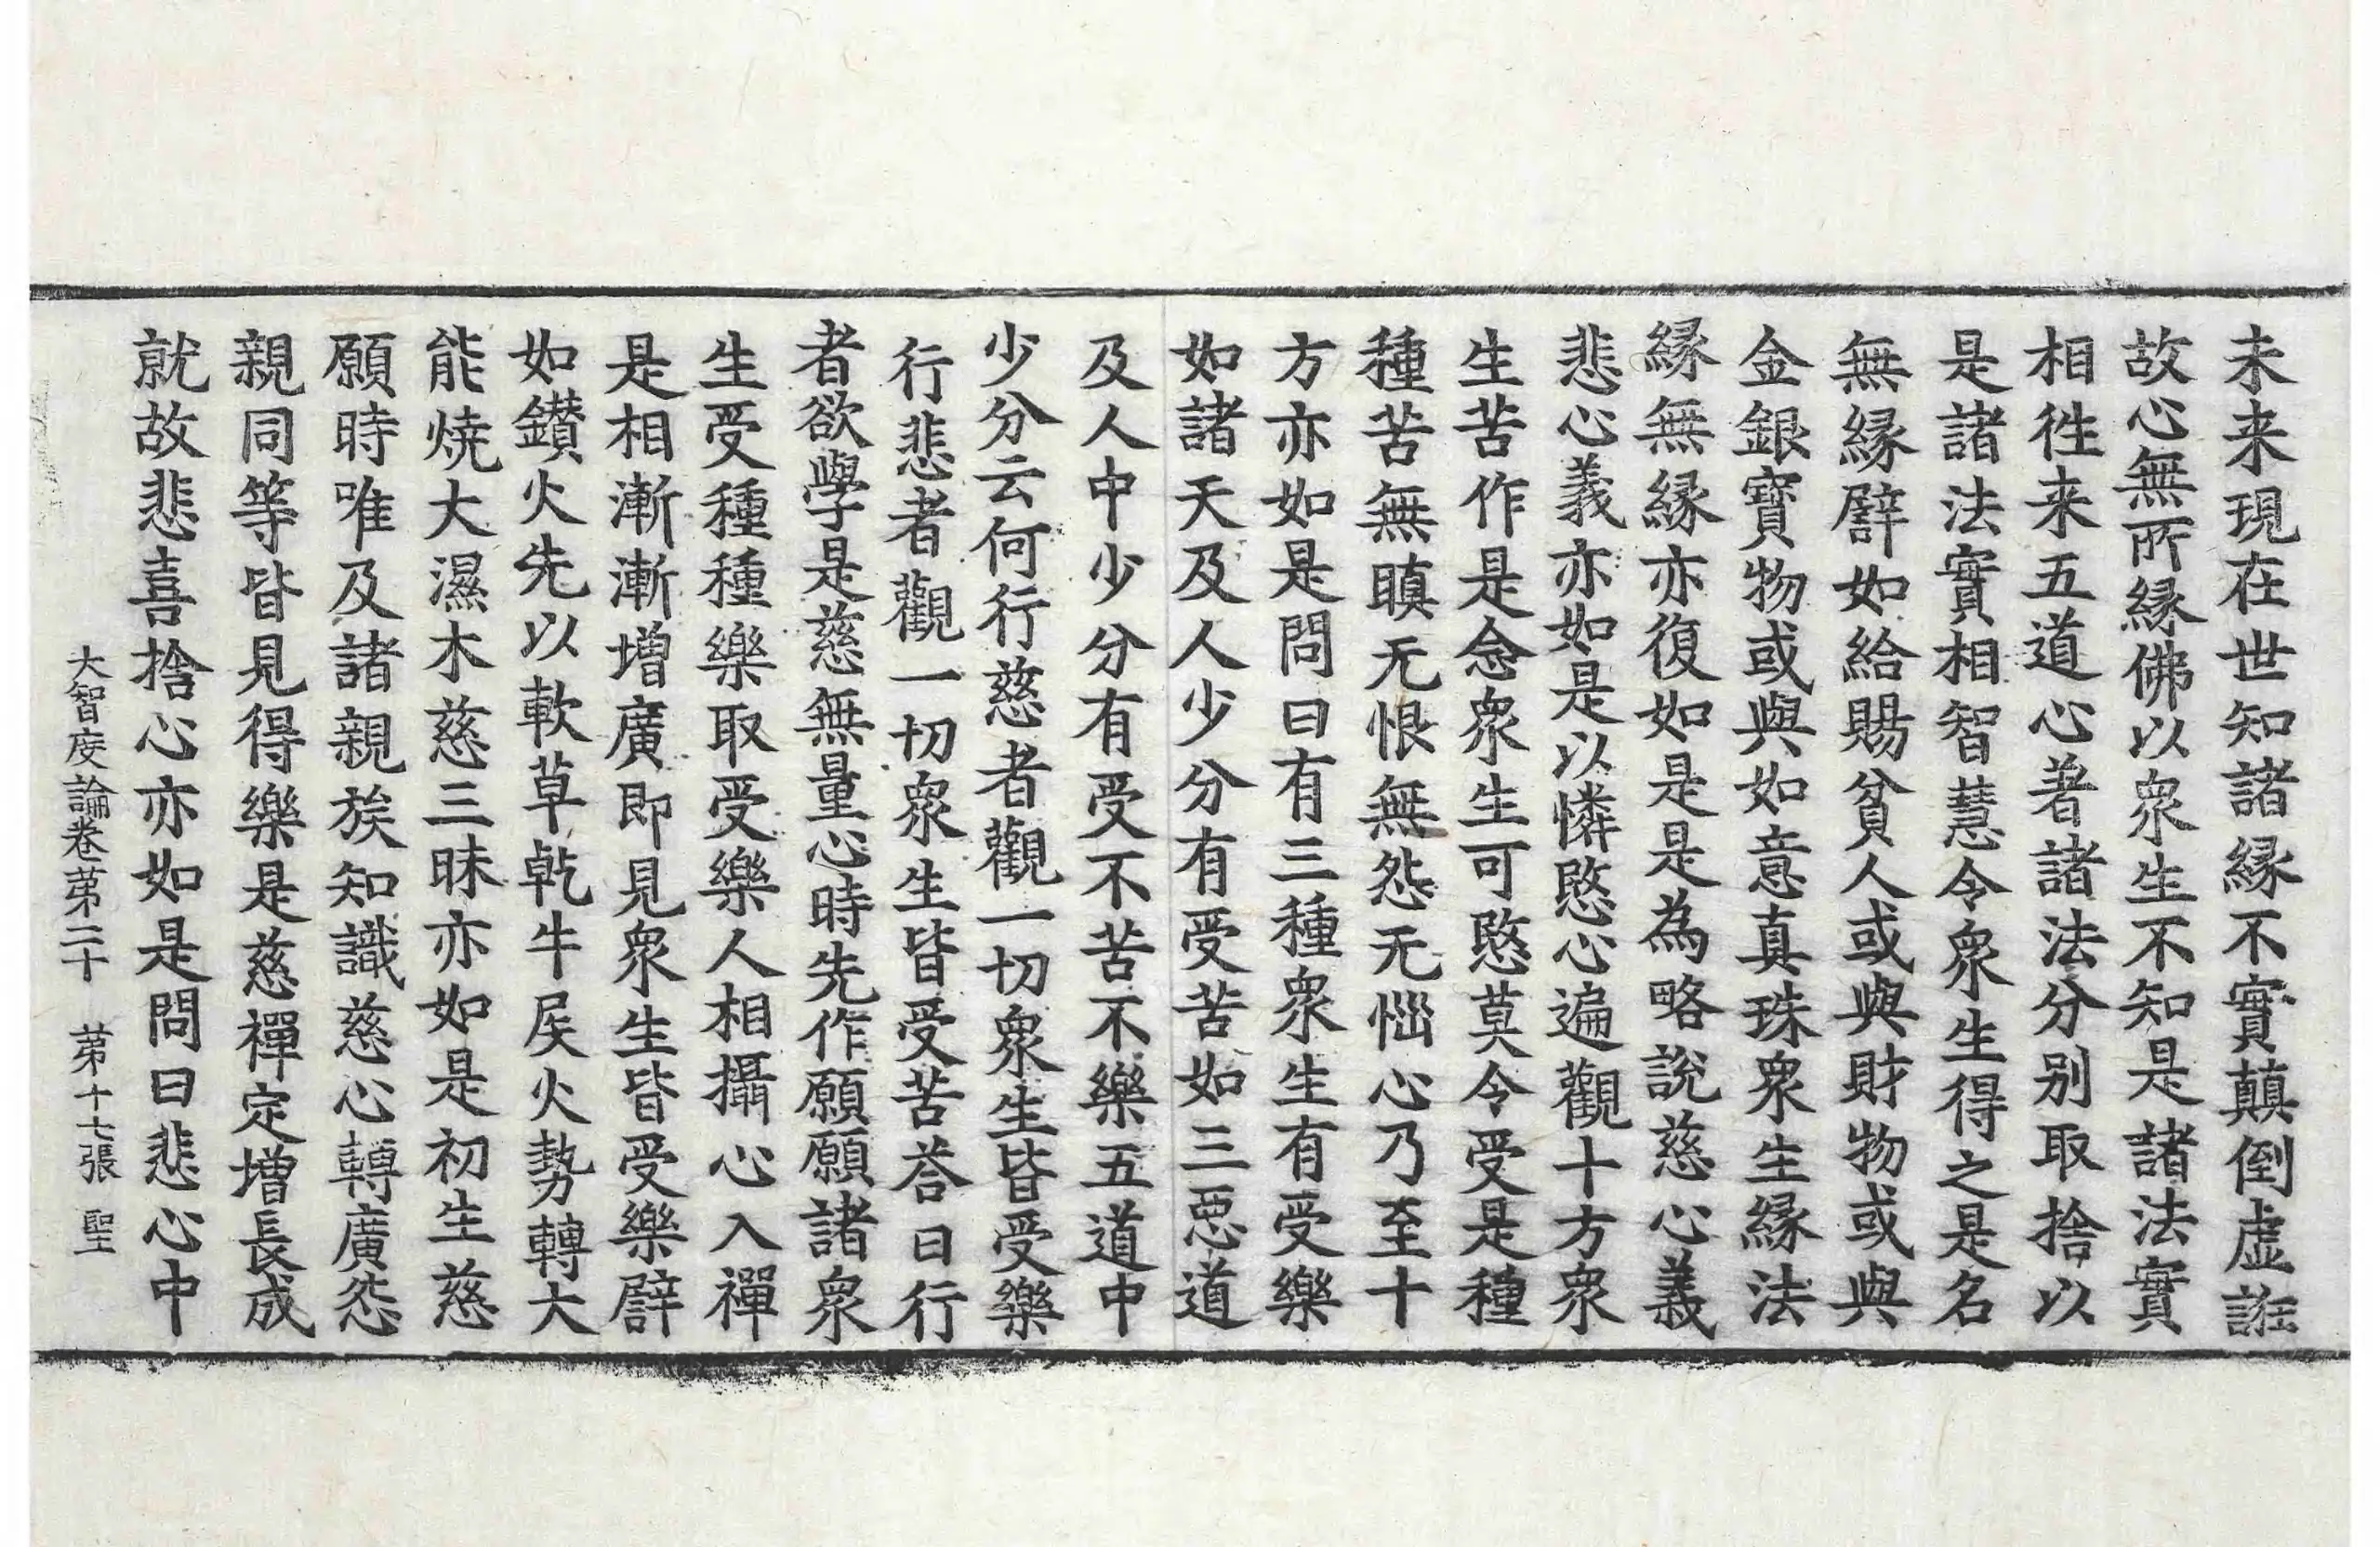 未来現在世知諸縁不實顛倒虛誑
故心無所縁佛以衆生不知是諸法實
相徃来五道心著諸法分别取捨以
是諸法實相智慧令衆生得之是名
無縁譬如給賜貧人或與財物或與
金銀寶物或與如意真珠衆生縁法
縁無縁亦復如是是為略說慈心義
悲心義亦如是以憐愍心遍觀十方衆
生苦作是念衆生可愍莫令受是種
種苦無瞋无恨無怨无惱心乃至十
方亦如是問曰有三種衆生有受樂
如諸天及人少分有受苦如三惡道
及人中少分有受不苦不樂五道中
少分云何行慈者觀一切衆生皆受樂
行悲者觀一切衆生皆受苦荅曰行
者欲學是慈無量心時先作願願諸衆
生受種種樂取受樂人相攝心入禪
是相漸漸增廣即見衆生皆受樂譬
如鑚火先以軟草乾牛屎火勢轉大
能燒大濕木慈三昧亦如是初生慈
願時唯及諸親族知識慈心轉廣怨
親同等皆見得樂是慈禪定增長成
就故悲喜捨心亦如是問曰悲心中
大智度論卷第二十 第十七張 聖